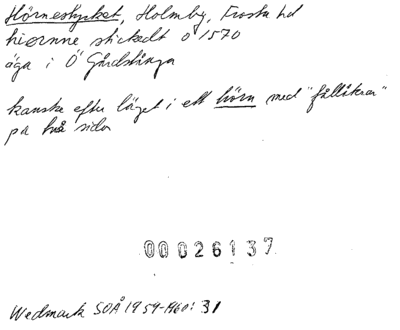 Hörnestycket, Holmby, Frosta hd
hiørnne stickedt o 1570
äga i Ö Gårdstånga
kanske efter läget i ett hörn med "fållåkrar"
på två sidor
00026137
Wedmark SOÅ 1959-1960: 31